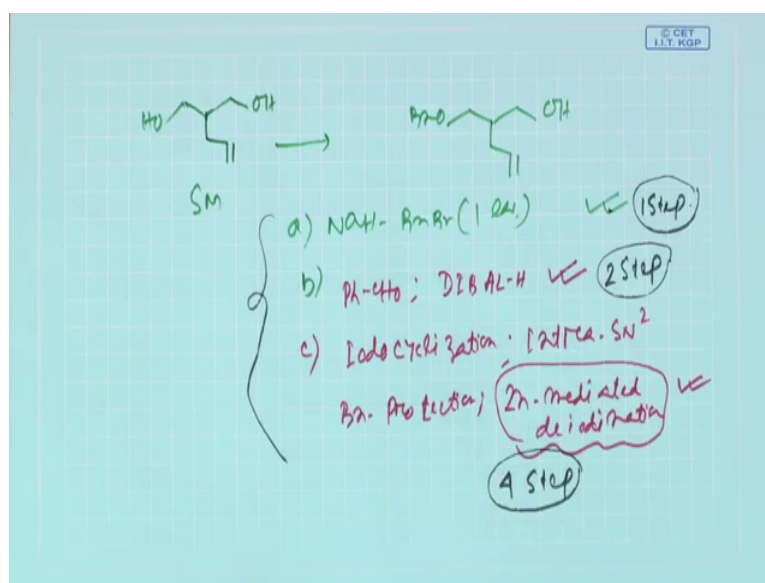 © CET
I.I.T. KGP
HO OH BnO OH
SM
a) NaH - BnBr (1 eq.) 1 Step.
b) Ph-CHO ; DIBAL-H 2 Step
c) Iodocyclization ; Intra. SN2
Bn- Protection; Zn-mediated
deiodination
4 Step